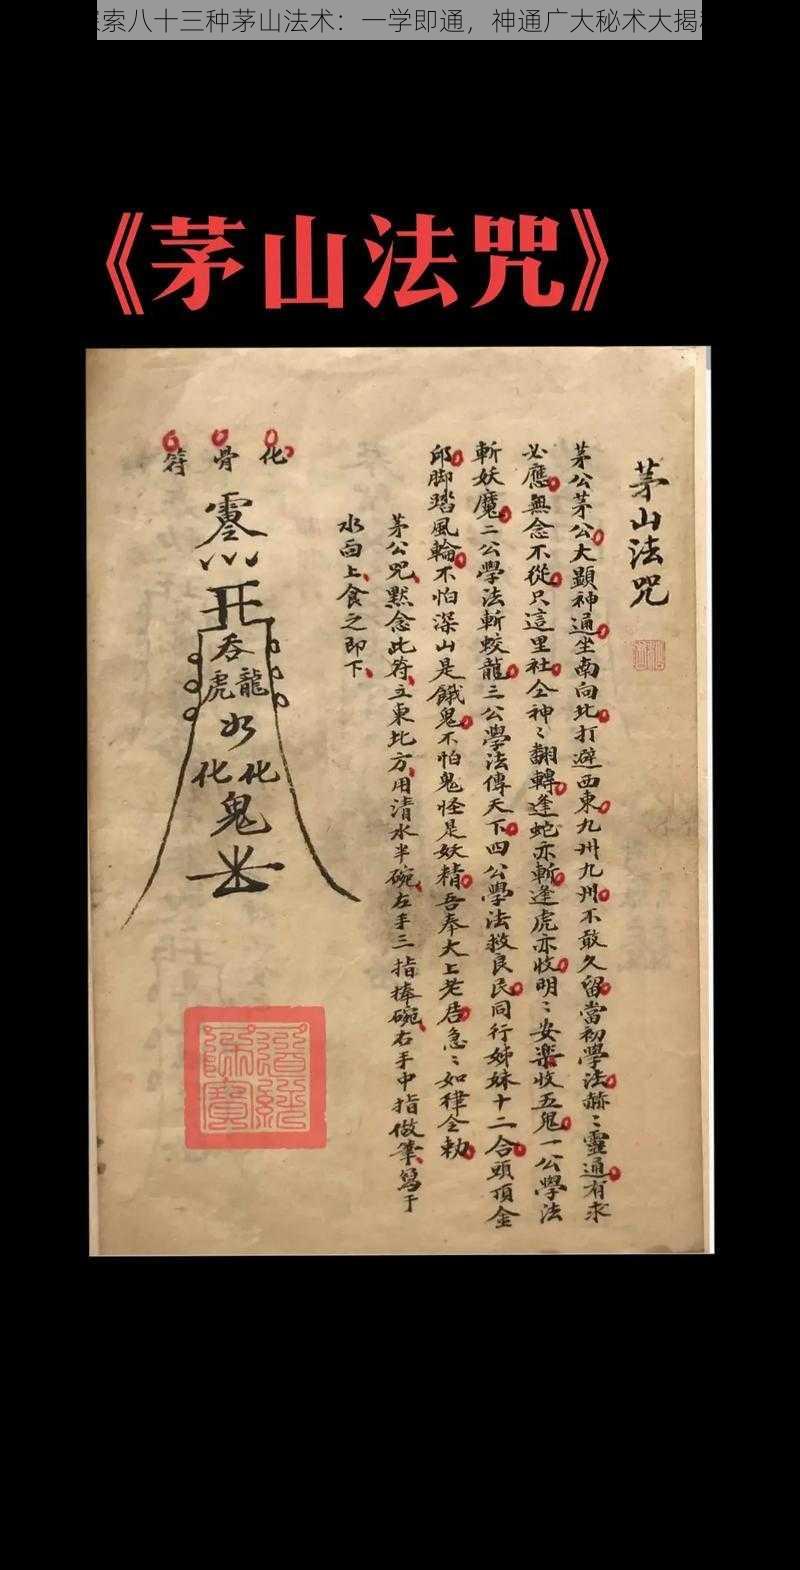 探索八十三种茅山法术：一学即通，神通广大秘术大揭
《茅山法咒》
茅山法咒
茅公茅公大顯神通坐南向北打避西東九州九州不敢久留當初學法赫〻靈通有求
必應無念不從只這里社仝神〻翻轉逢蛇亦斬逢虎亦收明〻安樂收五鬼一公學法
斬妖魔二公學法斬蛟龍三公學法傳天下四公學法救良民同行姊妹十二合頭頂金
邱脚踏風輪不怕深山是餓鬼不怕鬼怪是妖精吾奉大上老君急〻如律令勅
茅公咒默念此符立東北方用清水半碗左手三指捧碗右手中指做筆寫于
水面上食之即下
化骨符
吞
龍虎
水
化化
鬼
道經師寶